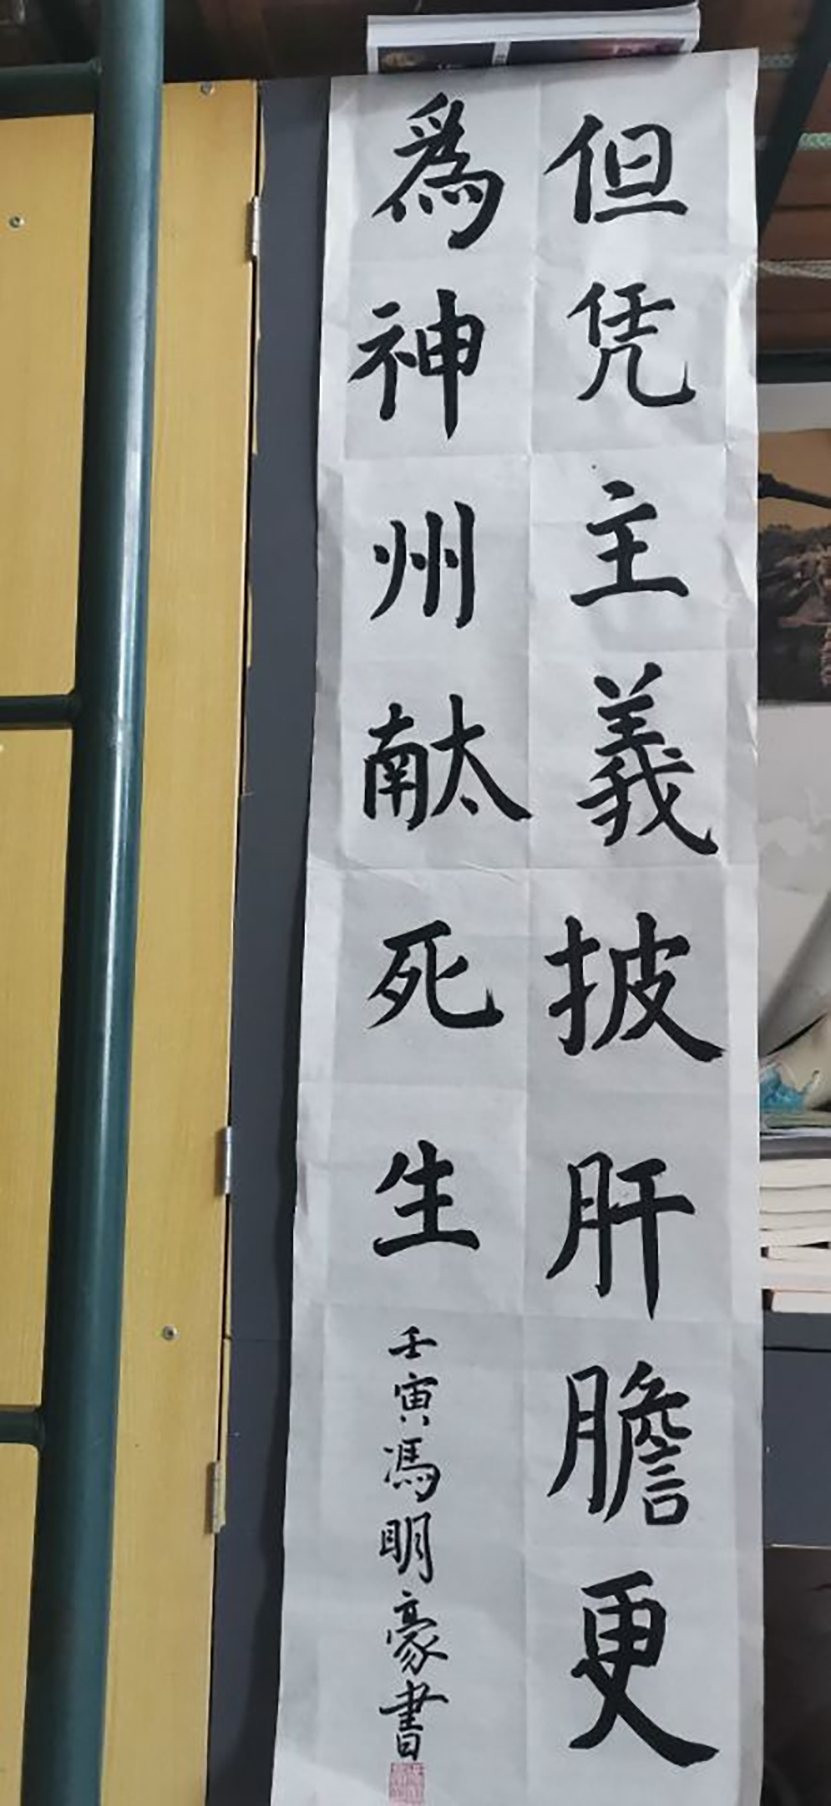 但凭主義披肝膽更
為神州献死生
壬寅馮明豪書